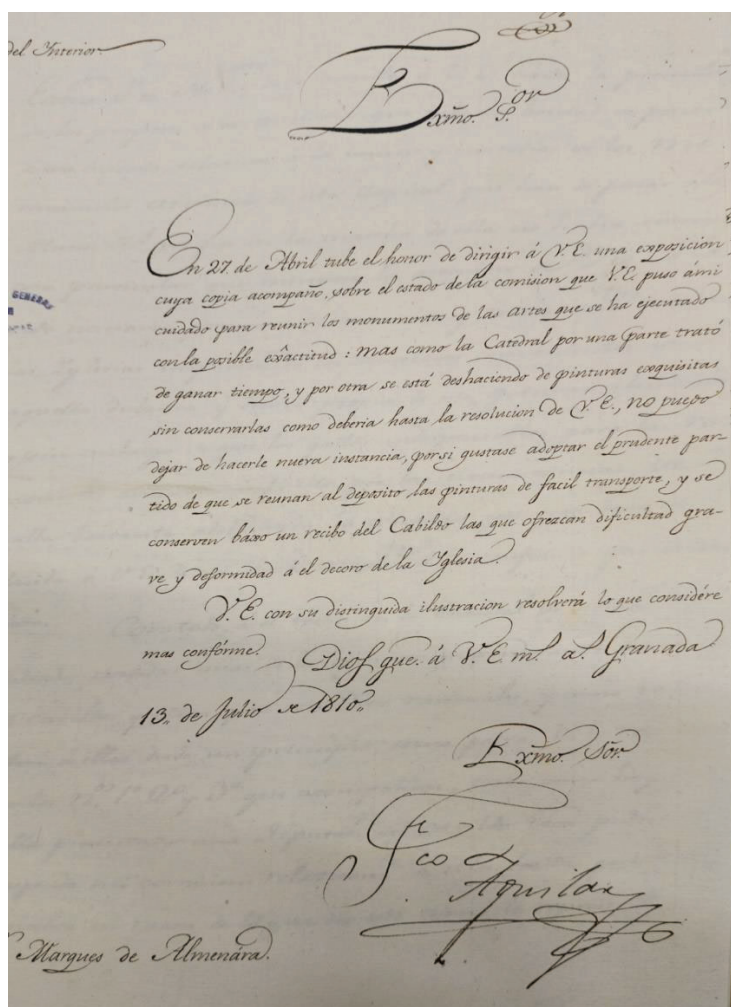 del Interior.
Exmo. S.or
En 27 de Abril tube el honor de dirigir á V.E. una exposicion
cuya copia acompaño, sobre el estado de la comision que V.E. puso ámi
GENERAL
cuidado para reunir los monumentos de las artes que se ha ejecutado
con la posible exâctitud: mas como la Catedral por una parte trató
de ganar tiempo, y por otra se está deshaciendo de pinturas exquisitas
sin conservarlas como deberia hasta la resolucion de V.E., no puedo
dejar de hacerle nueva instancia, por si gustase adoptar el prudente par-
tido de que se reunan al deposito las pinturas de facil transporte, y se
conserven báxo un recibo del Cabildo las que ofrezcan dificultad gra-
ve y deformidad á el decoro de la Iglesia.
V.E. con su distinguida ilustracion resolverá lo que considére
mas confórme. Dios gue. á V.E. m.s a.s Granada
13. de Julio de 1810.
Exmo. Sor.
Fco de
Aguilar
Marques de Almenára.